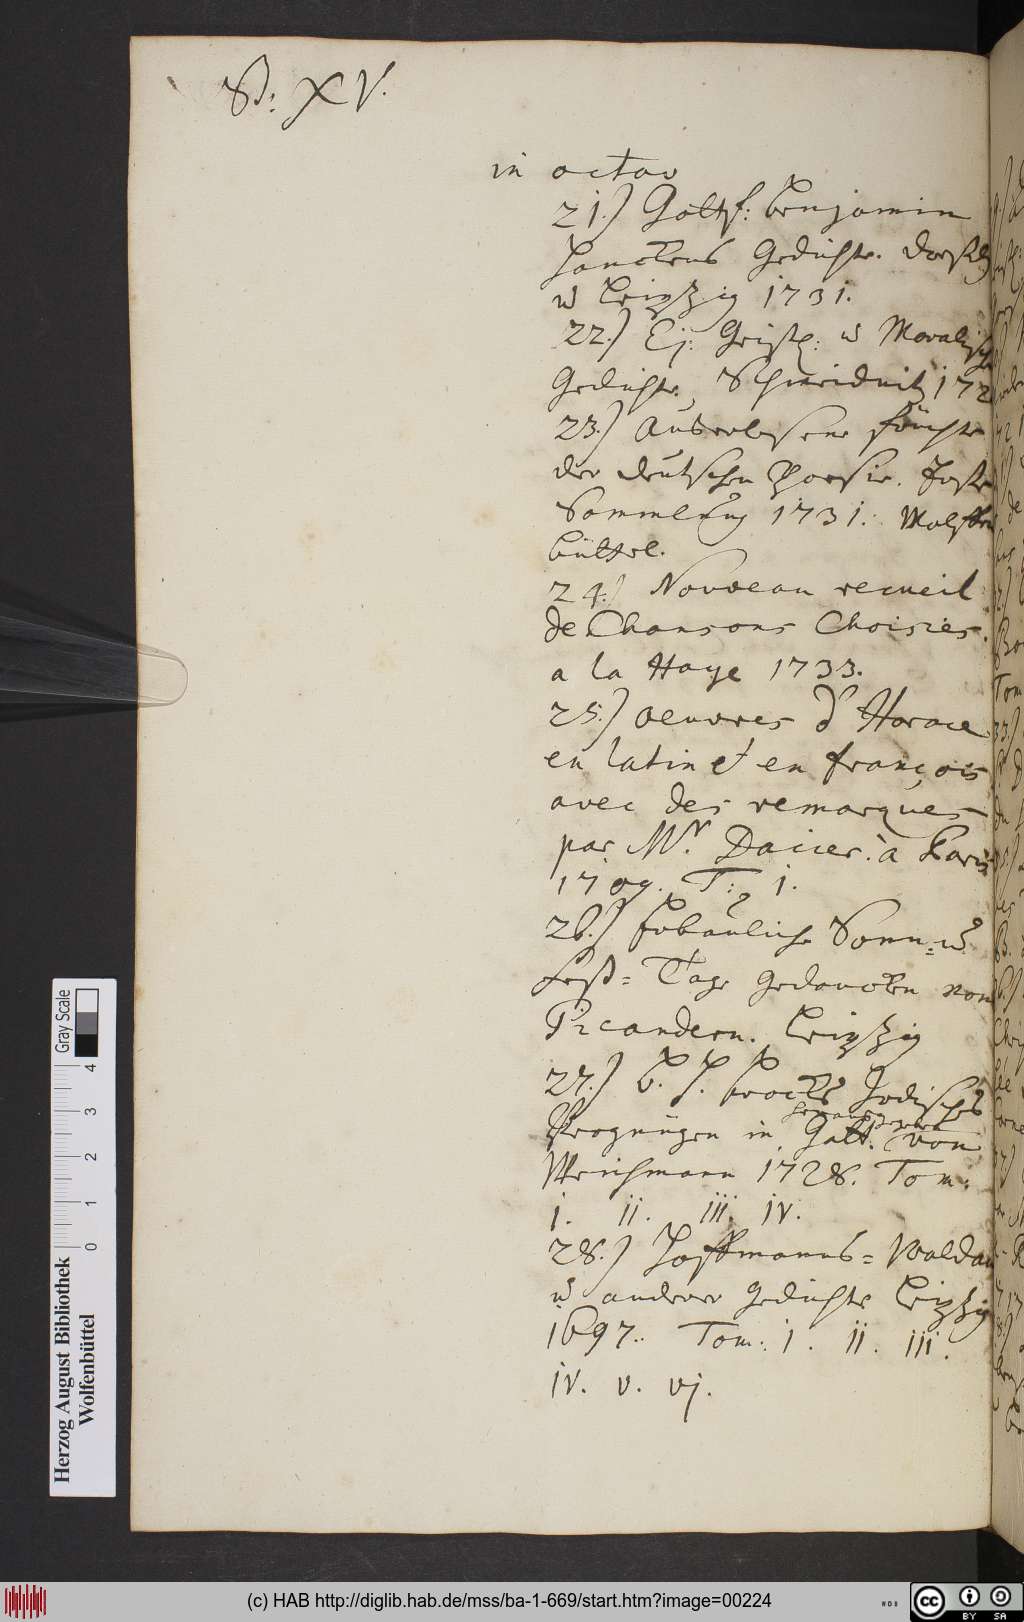 S: XV.
in octav
21.) Gottf: Benjamin
Hanckens Gedichte. Dresd
u Leipzig 1731.
22.) Ej: Geistl: u Moralische
Gedichte, Schweidnitz 172
23.) Auserlesene früchte
der deutschen Poesie. Erste
Sammlung 1731. Wolffen
büttel.
24.) Nouveau recueil
de Chansons Choisies.
a la Haye 1733.
25.) oeuvres d'Horace
en latin et en françois
avec des remarques
par Mr. Dacier. à Paris
1709. T: 1.
26.) Erbauliche Sonn= u
Fest= Tage gedancken von
Picandern. Leipzig
27.) B. H. Brocks Irdisches
Vergnügen in Gott. herausgegeben von
Weichmann 1728. Tom:
i. ii. iii. iv.
28.) Hoffmanns= Waldau
u anderer Gedichte Leipzig
1697. Tom: i. ii. iii.
iv. v. vj.
Gray Scale
4
3
2
1
0
Herzog August Bibliothek
Wolfenbüttel
(c) HAB http://diglib.hab.de/mss/ba-1-669/start.htm?image=00224
cc BY SA